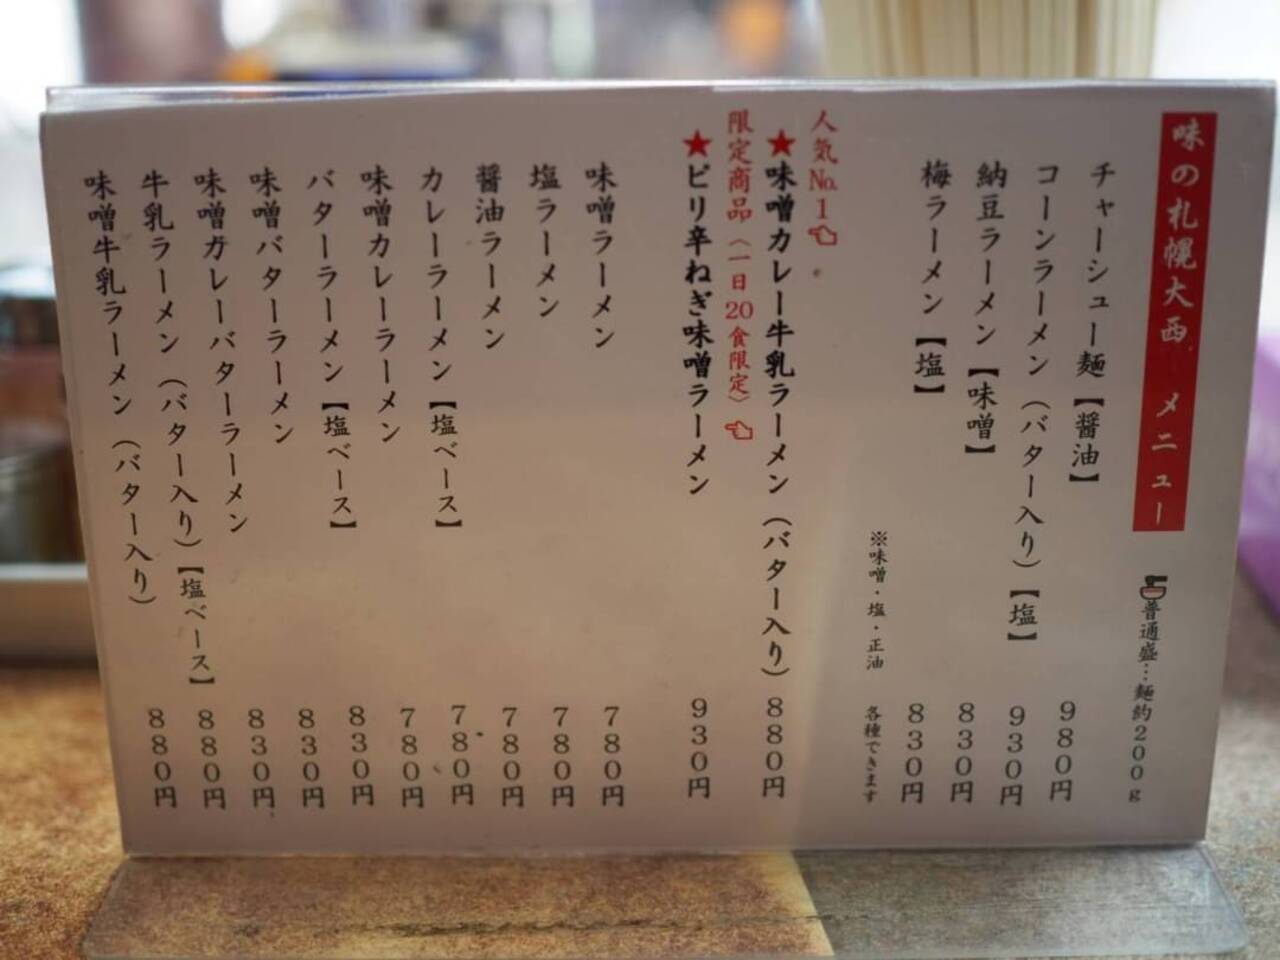 味の札幌大西 メニュー
普通盛…麺約200g
チャーシュー麺【醤油】 980円
コーンラーメン（バター入り）【塩】 930円
納豆ラーメン【味噌】 830円
梅ラーメン【塩】 830円
※味噌・塩・正油 各種できます
人気№1
★味噌カレー牛乳ラーメン（バター入り） 880円
限定商品〈一日20食限定〉
★ピリ辛ねぎ味噌ラーメン 930円
味噌ラーメン 780円
塩ラーメン 780円
醤油ラーメン 780円
カレーラーメン【塩ベース】 780円
味噌カレーラーメン 780円
バターラーメン【塩ベース】 830円
味噌バターラーメン 830円
味噌カレーバターラーメン 830円
牛乳ラーメン（バター入り）【塩ベース】 880円
味噌牛乳ラーメン（バター入り） 880円